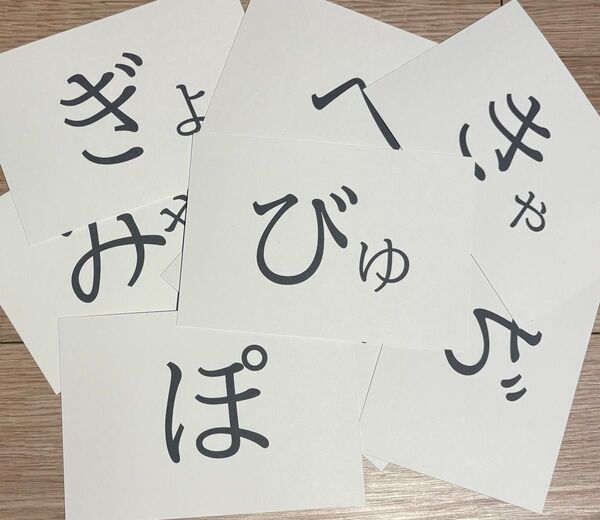 ぎょ
へ
きゃ
みゃ
びゅ
ぽ